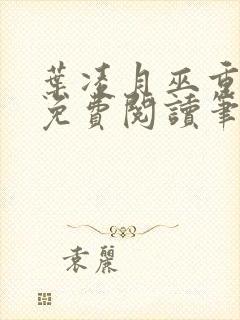 葉凌月巫重
免費閱讀筆
袁麗